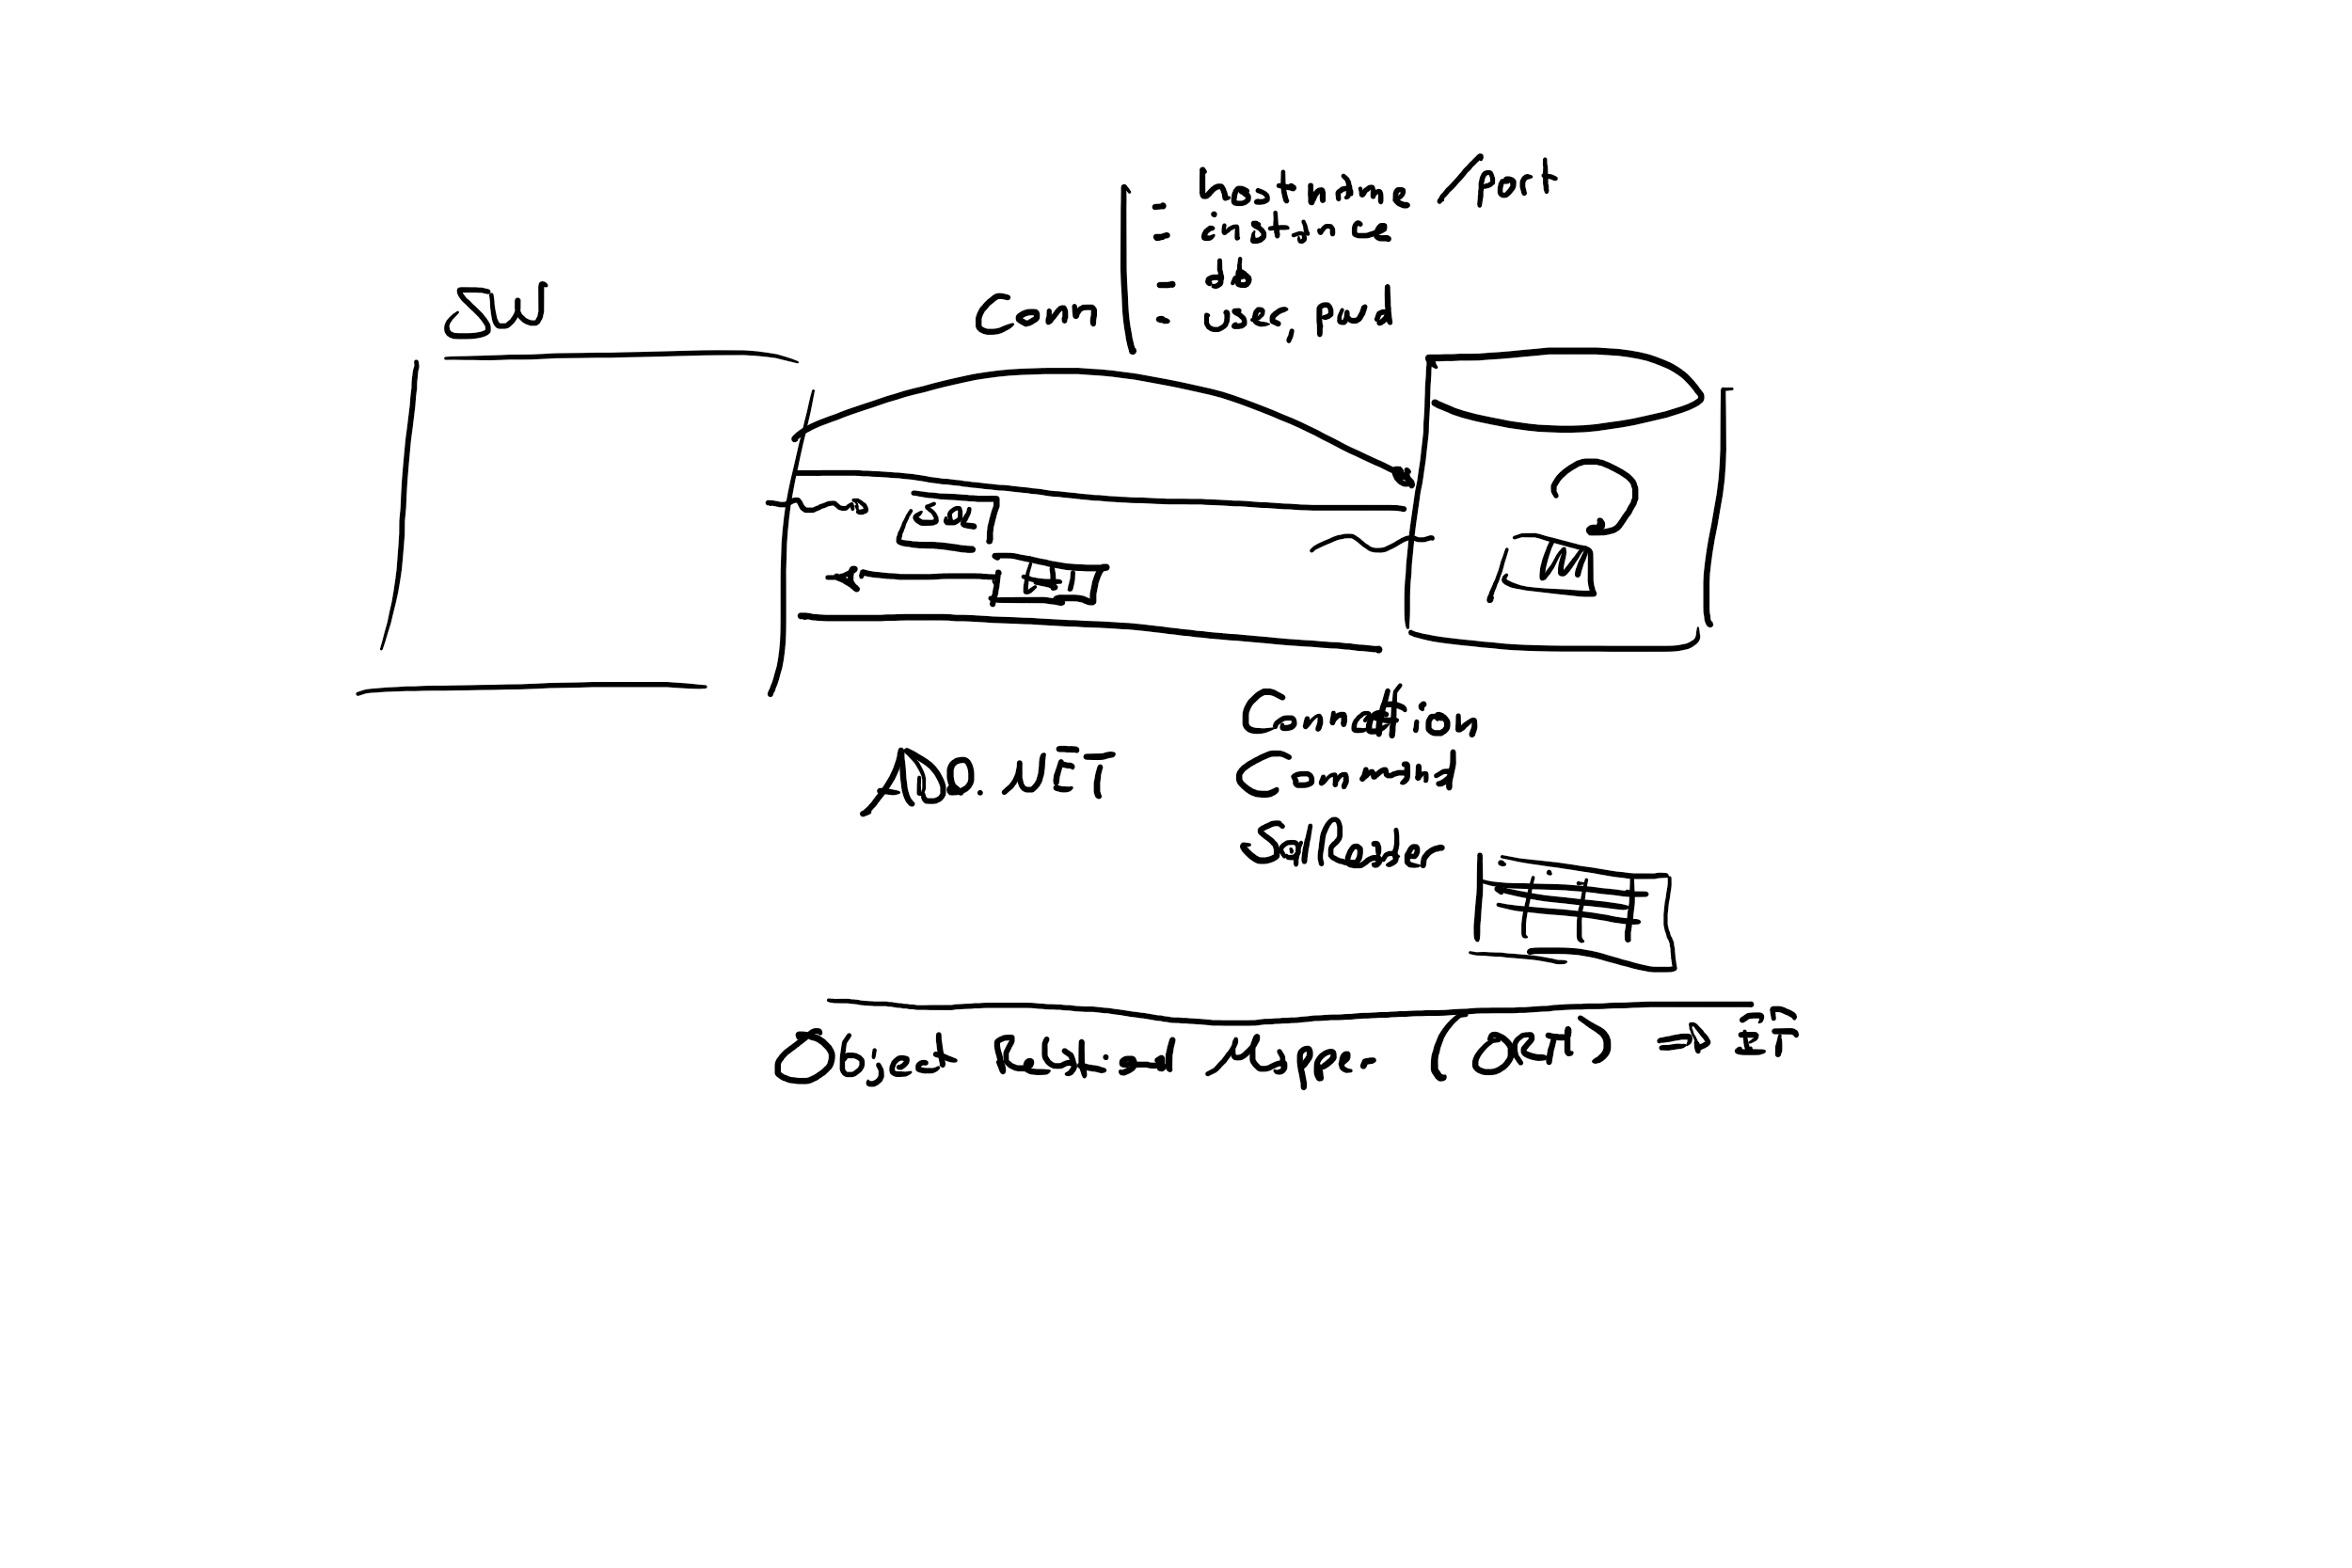 - hostname /port
- instance
- db
- user, pwd
SW
Conn
SQL
ADO.NET
Connection
Command
SqlReader
Object Relational Mapper (ORM) => EF